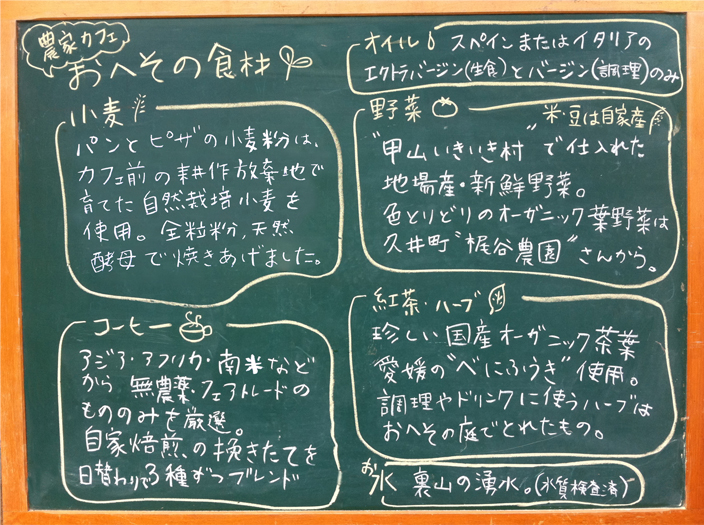 農家カフェ
おへその食材
小麦
パンとピザの小麦粉は、
カフェ前の耕作放棄地で
育てた自然栽培小麦を
使用。全粒粉、天然
酵母で焼きあげました。
コーヒー
アジア・アフリカ・南米など
から無農薬・フェアトレードの
もののみを厳選。
自家焙煎、の挽きたてを
日替わりで3種ずつブレンド
オイル スペインまたはイタリアの
エクトラバージン(生食)とバージン(調理)のみ
野菜
米・豆は自家産
"甲山いきいき村"で仕入れた
地場産・新鮮野菜。
色とりどりのオーガニック葉野菜は
久井町"梶谷農園"さんから。
紅茶・ハーブ
珍しい国産オーガニック茶葉
愛媛の"べにふうき"使用。
調理やドリンクに使うハーブは
おへその庭でとれたもの。
お水 裏山の湧水。(水質検査済)